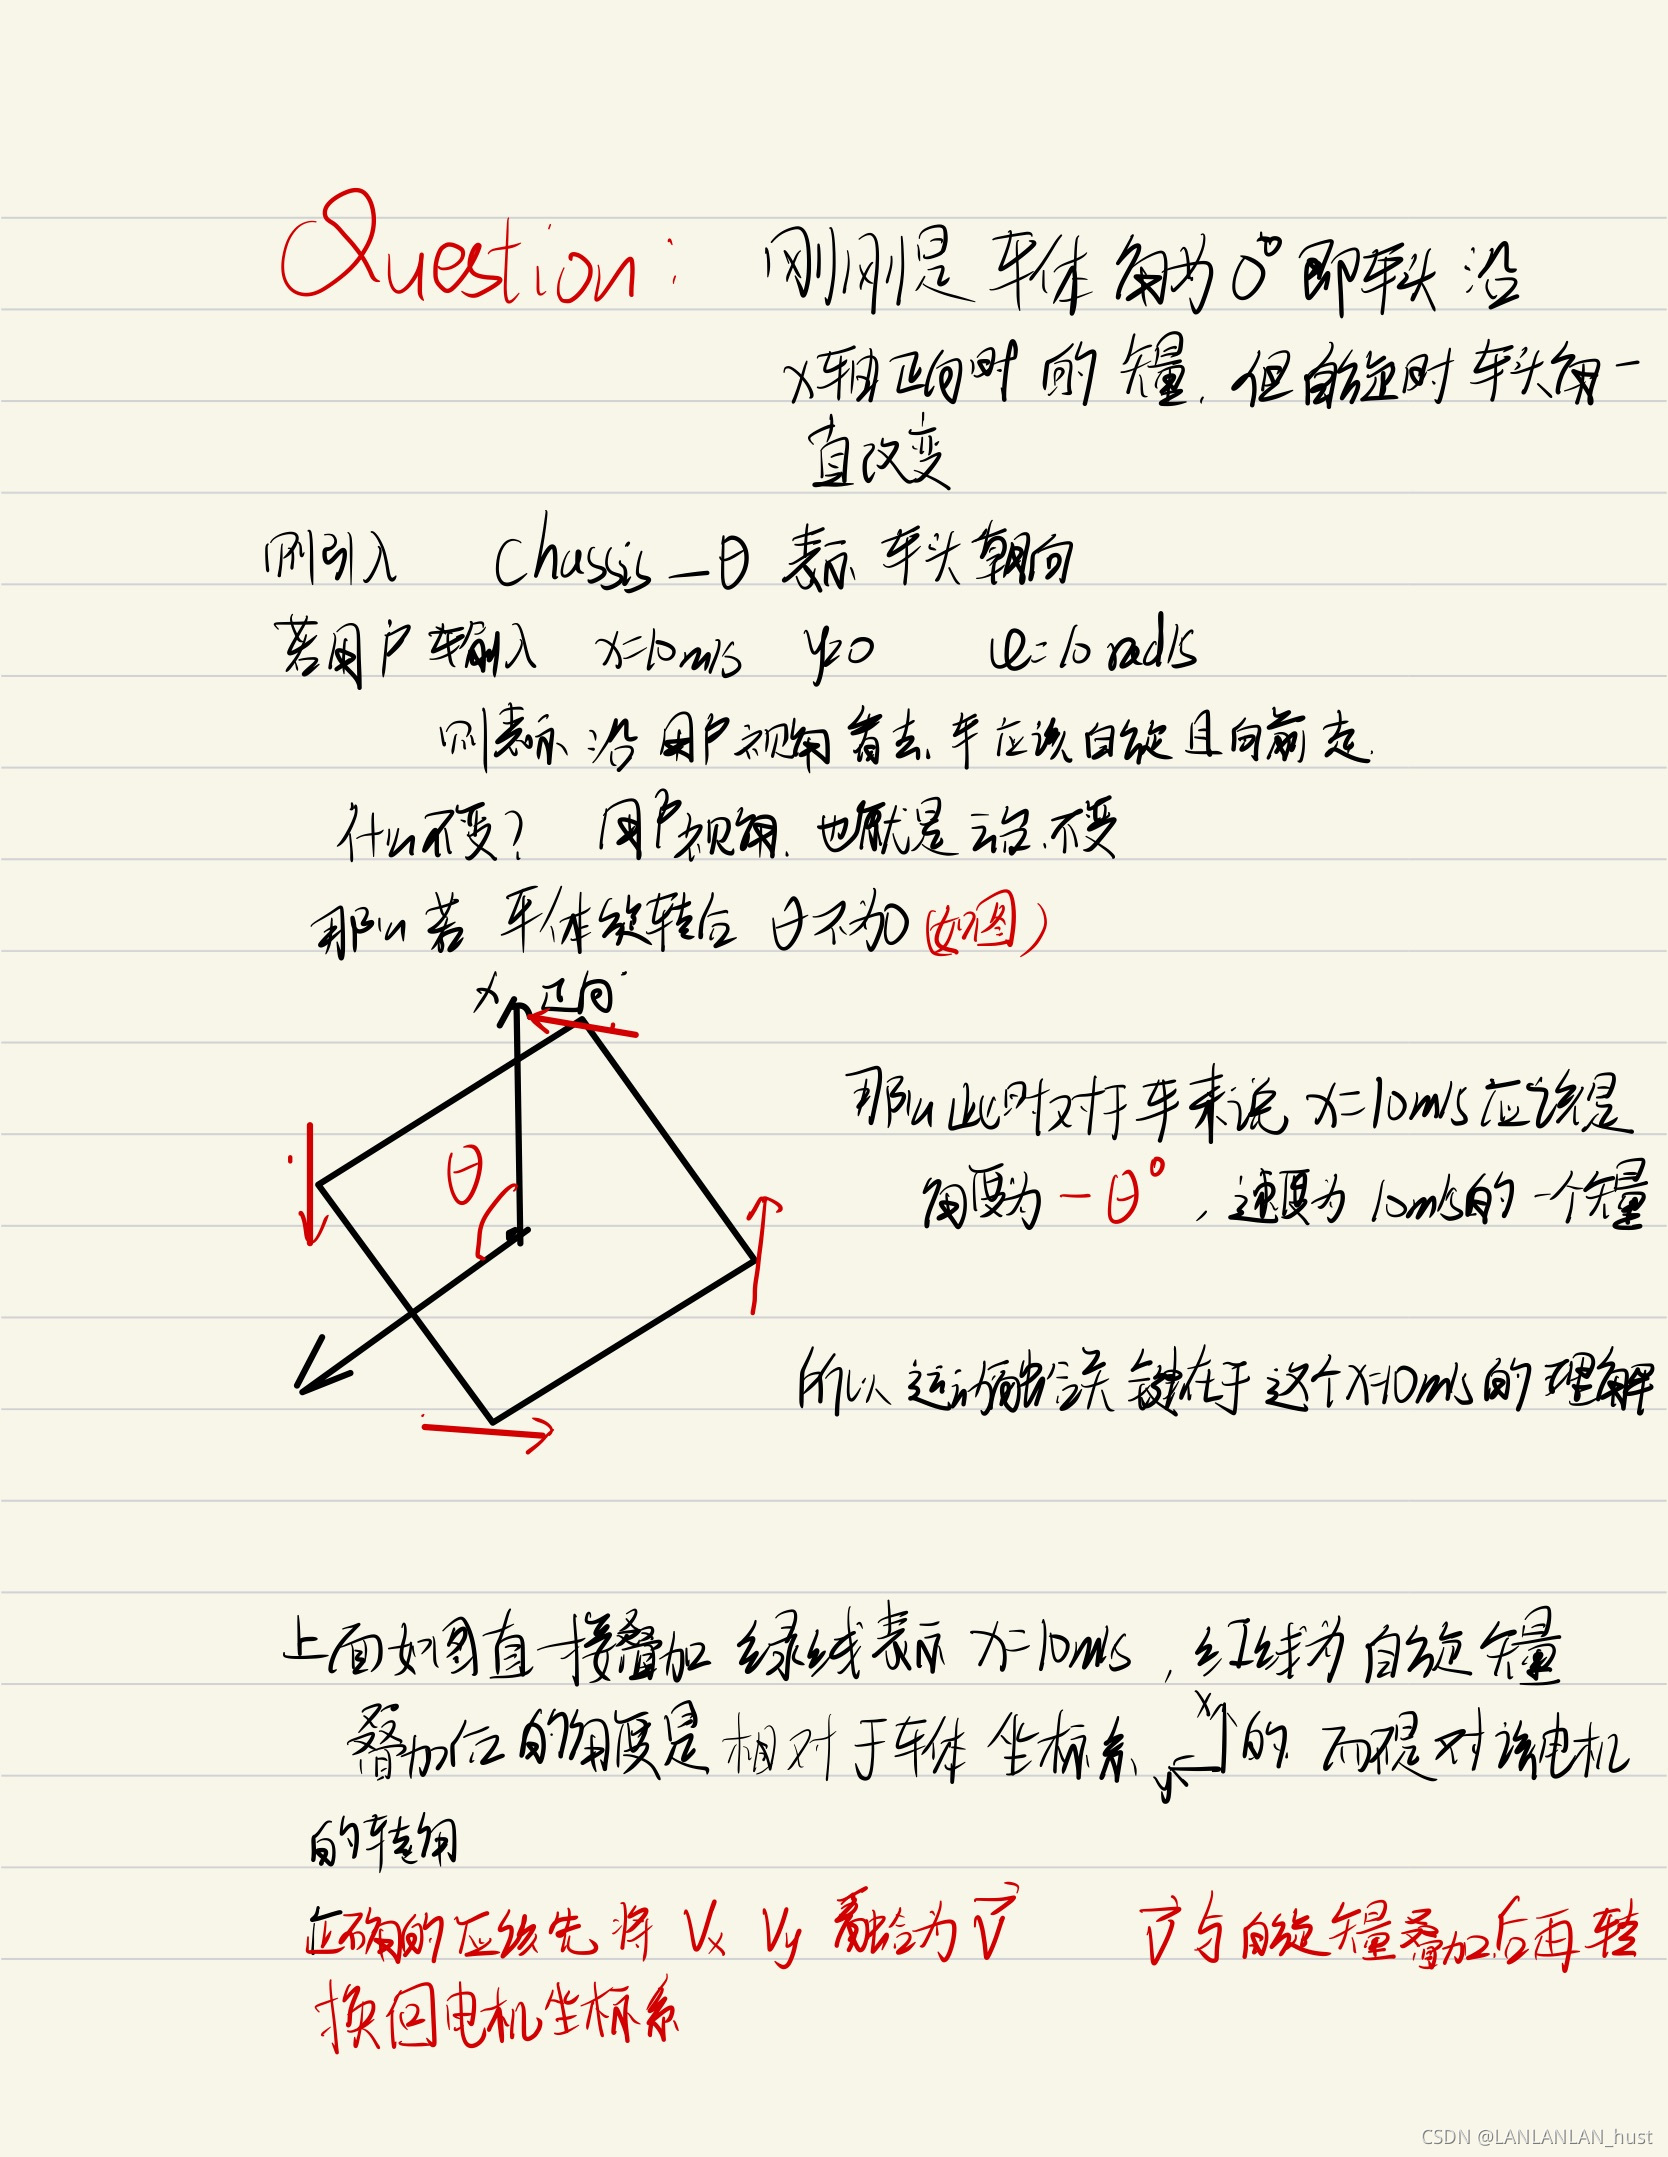 Question: 刚刚是 车体角为0° 即车头沿
x轴正向时的矢量. 但自旋时车头角一
直改变
则引入 Chassis_θ 表示车头朝向
若用户输入 x=10m/s y=0 φ=10rad/s
则表示沿用户视角看去,车应该自旋且向前走.
什么不变? 用户视角. 也就是云台.不变
那么若 车体旋转后 θ不为0 (如图)
x 正向
θ
那么此时对于车来说 x=10m/s应该是
角度为-θ°, 速度为10m/s的一个矢量
所以运动融合关键在于这个x=10m/s的理解
上面如图直接叠加 绿线表示 x=10m/s, 红线为自旋矢量
叠加后的角度是相对于车体坐标系 x y 的 而不是对该电机
的转角
正确的应该先将 Vx Vy 融合为V V与自旋矢量叠加后再转
换回电机坐标系
CSDN @LANLANLAN_hust